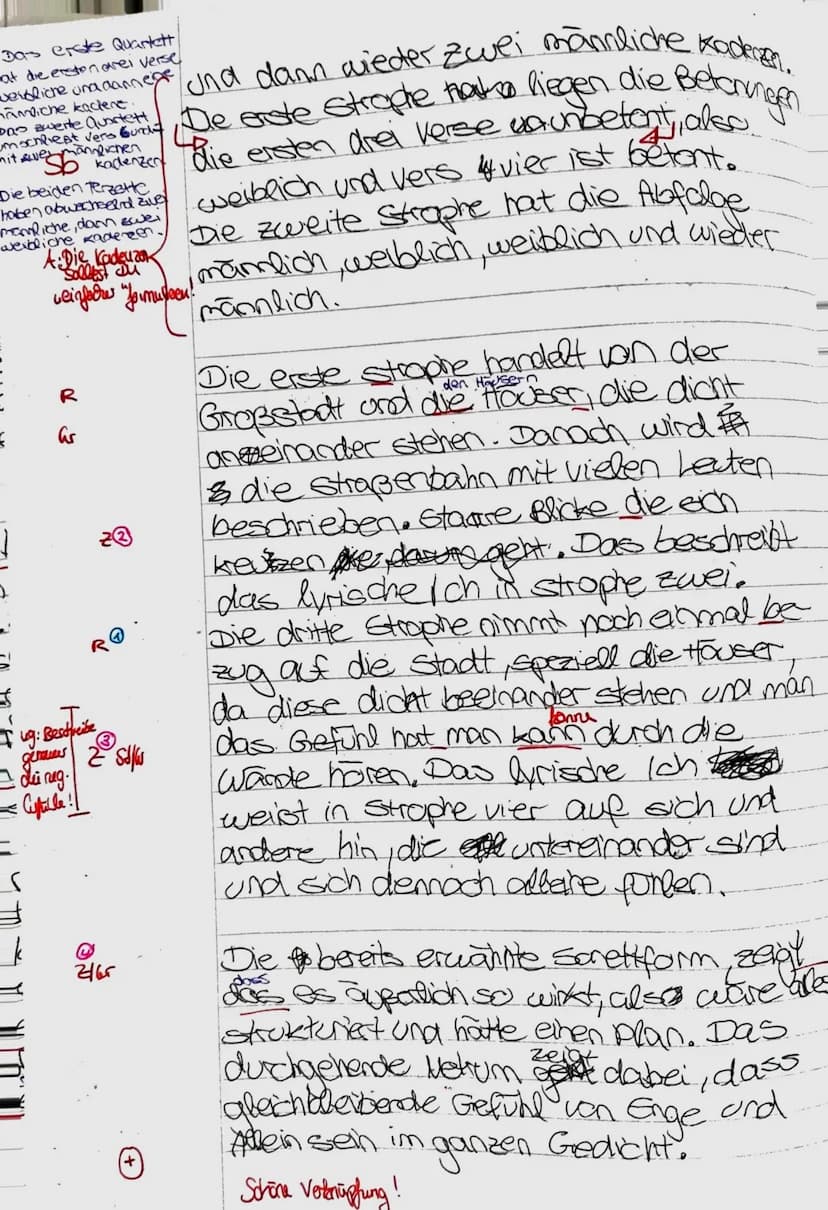 Das erste Quartett
hat die ersten drei Verse
weibliche und dann eine
männliche Kadenz.
Das zweite Quartett
umschließt Vers 6 und 7
mit zwei männlichen
Kadenzen
Sb
Die beiden Terzette
haben abwechselnd zwei
männliche, dann zwei
weibliche Kadenzen.
A: Die Kadenzen
solltest Du
einfacher "formulieren!
und dann wieder zwei männliche Kadenzen.
De erste Strophe liegen die Betonungen
die ersten drei Verse unbetont, also
weiblich und Vers vier ist betont.
Die zweite Strophe hat die Abfolge
männlich, weiblich, weiblich und wieder
männlich.
Die erste Strophe handelt von der
den Häusern
Großstadt und die Häuser, die dicht
aneinander stehen. Danach wird
die Straßenbahn mit vielen Leuten
beschrieben. Starre Blicke die sich
kreuzen. Das beschreibt
das lyrische Ich in Strophe zwei.
Die dritte Strophe nimmt noch einmal be
zug auf die Stadt, speziell die Häuser,
da diese dicht beieinander stehen und man
könne
das Gefühl hat man kann durch die
Wände hören. Das lyrische Ich
weist in Strophe vier auf sich und
andere hin, die untereinander sind
und sich dennoch alleine fühlen.
R
Gr
Z 2
R 1
vg: Beschreibe
genauer
die neg.
Gefühle!
3
Z Sd/Gr
Die bereits erwähnte Sonettform, zeigt
dass
das es äußerlich so wirkt, also wäre alles
strukturiert und hätte einen Plan. Das
zeigt
durchgehende Metrum dabei, dass
gleichbleibende Gefühl von Enge und
Allein sein im ganzen Gedicht.
4
Z/Gr
+
Schöne Verknüpfung!